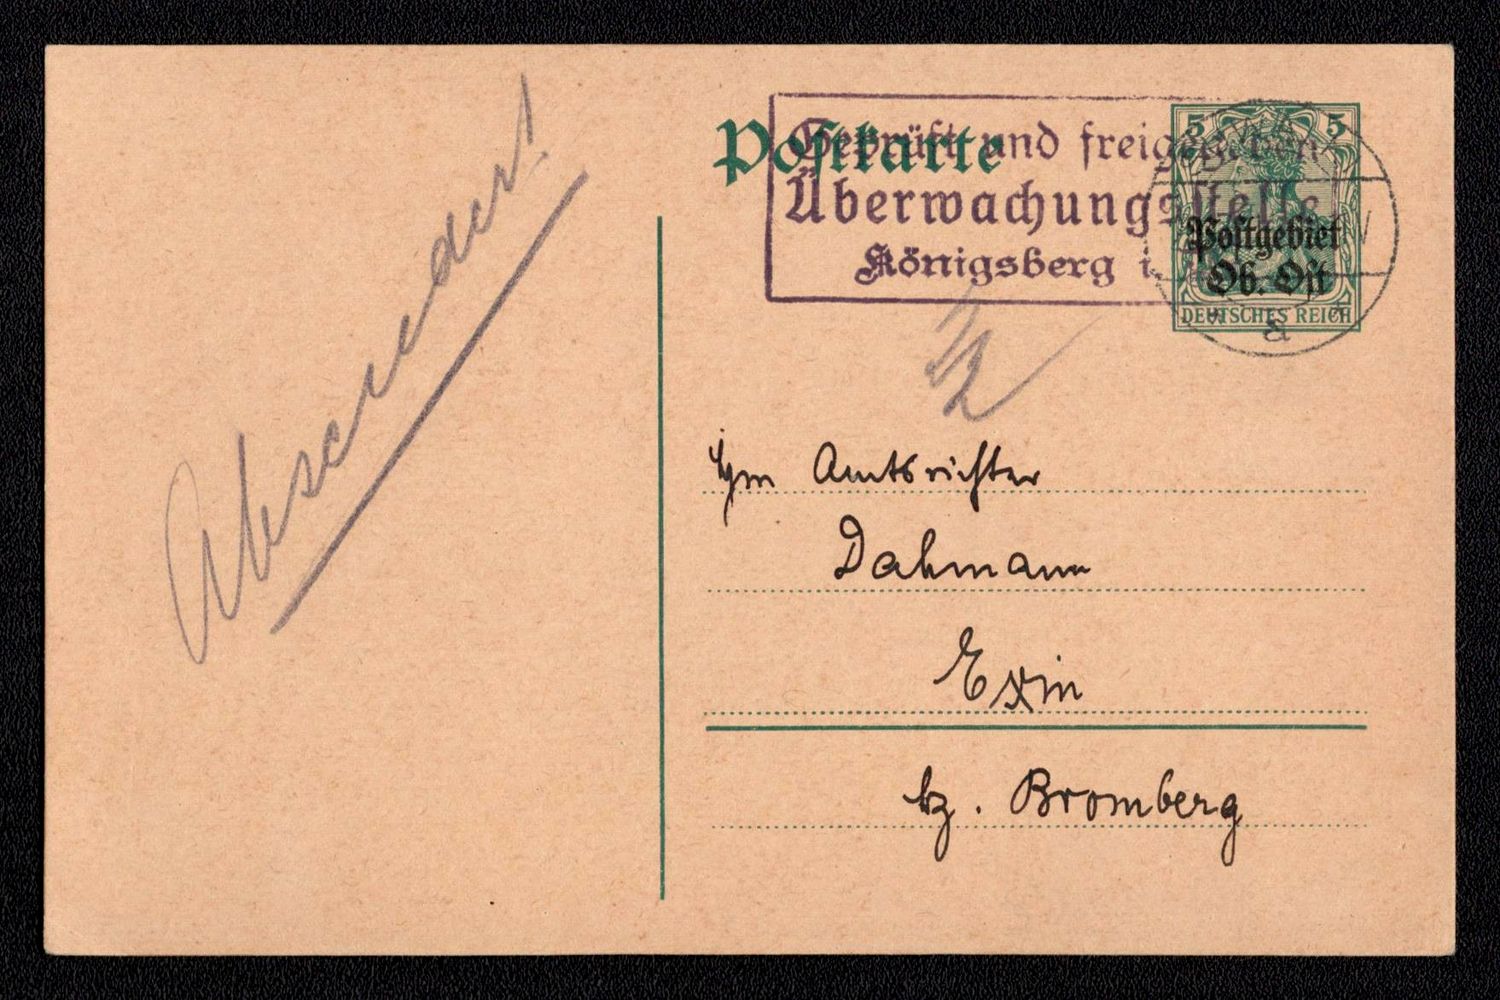 Postkarte
Geprüft und freigegeben
Überwachungsstelle
Königsberg i.
5 5
Postgebiet
Ob. Ost
DEUTSCHES REICH
a
Absender!
Amtsrichter
Dahmann
Exin
bz. Bromberg